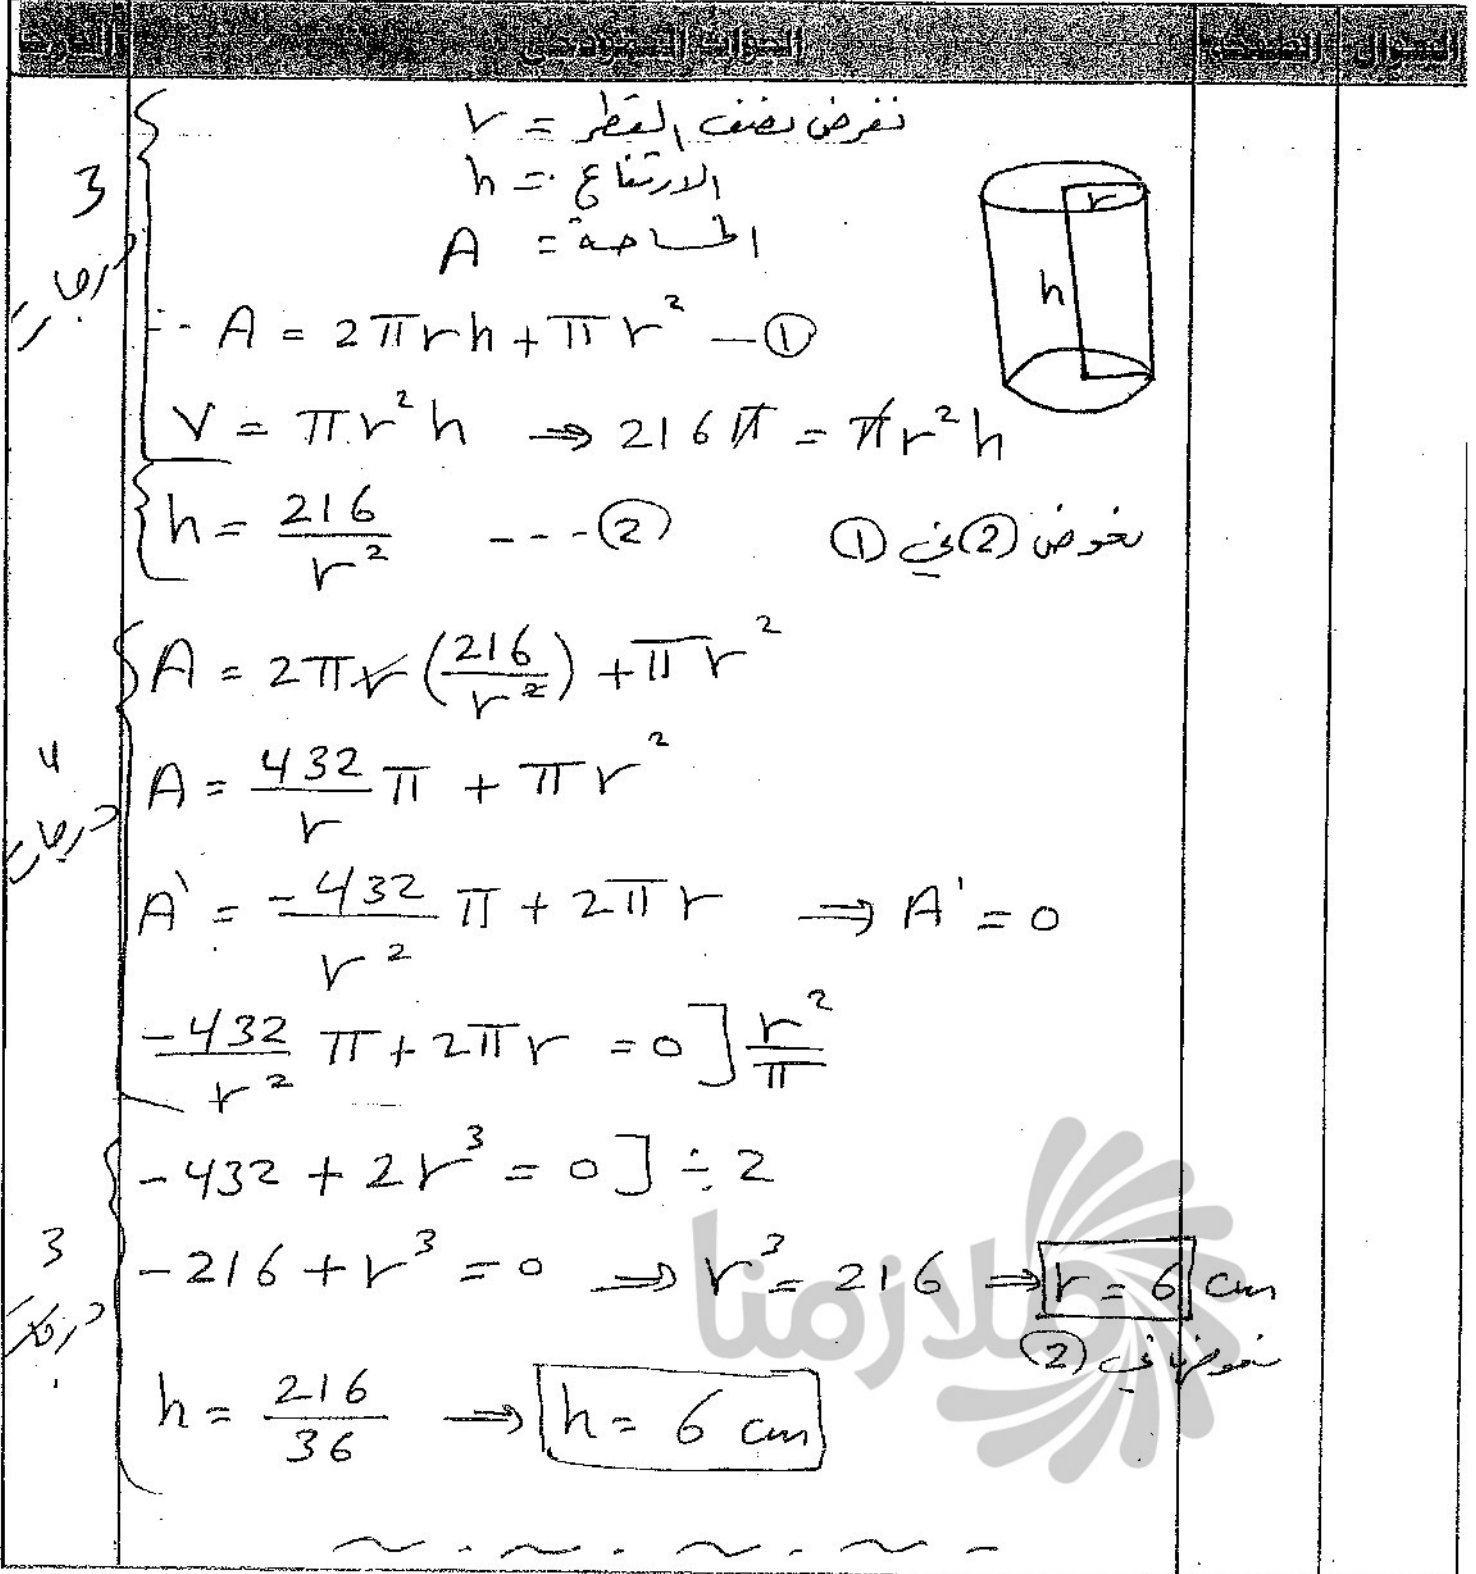 السؤال الصفحة الجواب النموذجي الدرجة
نفرض نصف القطر = r
الارتفاع = h
المساحة = A
r
h
3 درجات
∴ A = 2πrh + πr² — ①
V = πr²h ⇒ 216π = πr²h
h = 216/r² --- ② نعوض ② في ①
A = 2πr (216/r²) + πr²
4 درجات
A = 432/r π + πr²
A' = -432/r² π + 2πr ⇒ A' = 0
-432/r² π + 2πr = 0] r²/π
-432 + 2r³ = 0] ÷ 2
3 درجات
-216 + r³ = 0 ⇒ r³ = 216 ⇒ r = 6 cm
نعوضها في ②
h = 216/36 ⇒ h = 6 cm
ملازمنا